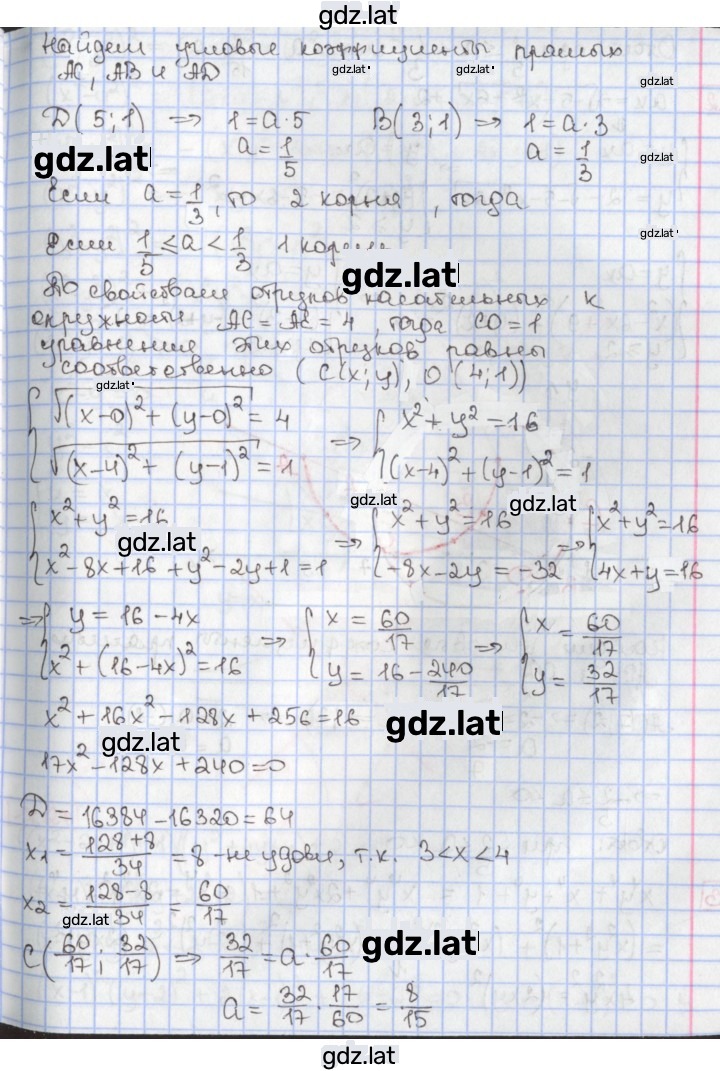 gdz.lat
Найдем угловые коэффициенты прямых
gdz.lat gdz.lat
АС, АВ и АD
gdz.lat
D(5;1) => 1=a·5 B(3;1) => 1=a·3
gdz.lat
a=1/5 a=1/3
gdz.lat
Если a=1/3, то 2 корня, тогда
gdz.lat
Если 1/5 ≤ a < 1/3 1
gdz.lat
По свойствам отрезков касательных к
окружности AC = = 4, тогда CO=1
уравнения этих отрезков равны
соответственно (C(x;y), O(4;1))
gdz.lat
{√((x-0)²+(y-0)²) = 4 => {x²+y²=16
{√((x-4)²+(y-1)²) = 1 {(x-4)²+(y-1)²=1
gdz.lat gdz.lat
{x²+y²=16 => {x²+y²=16 => {x²+y²=16
gdz.lat
{x²-8x+16+y²-2y+1=1 {-8x-2y=-32 {4x+y=16
=> {y=16-4x => {x=60/17 => {x=60/17
{x²+(16-4x)²=16 {y=16-240/17 {y=32/17
x²+16x²-128x+256=16
gdz.lat
gdz.lat
17x²-128x+240=0
D=16384-16320=64
x₁=(128+8)/34=8-не удовл, т.к. 3<x<4
x₂=(128-8)/34=60/17
gdz.lat
C(60/17; 32/17) => 32/17=a·60/17
gdz.lat
a=32/17·17/60=8/15
gdz.lat